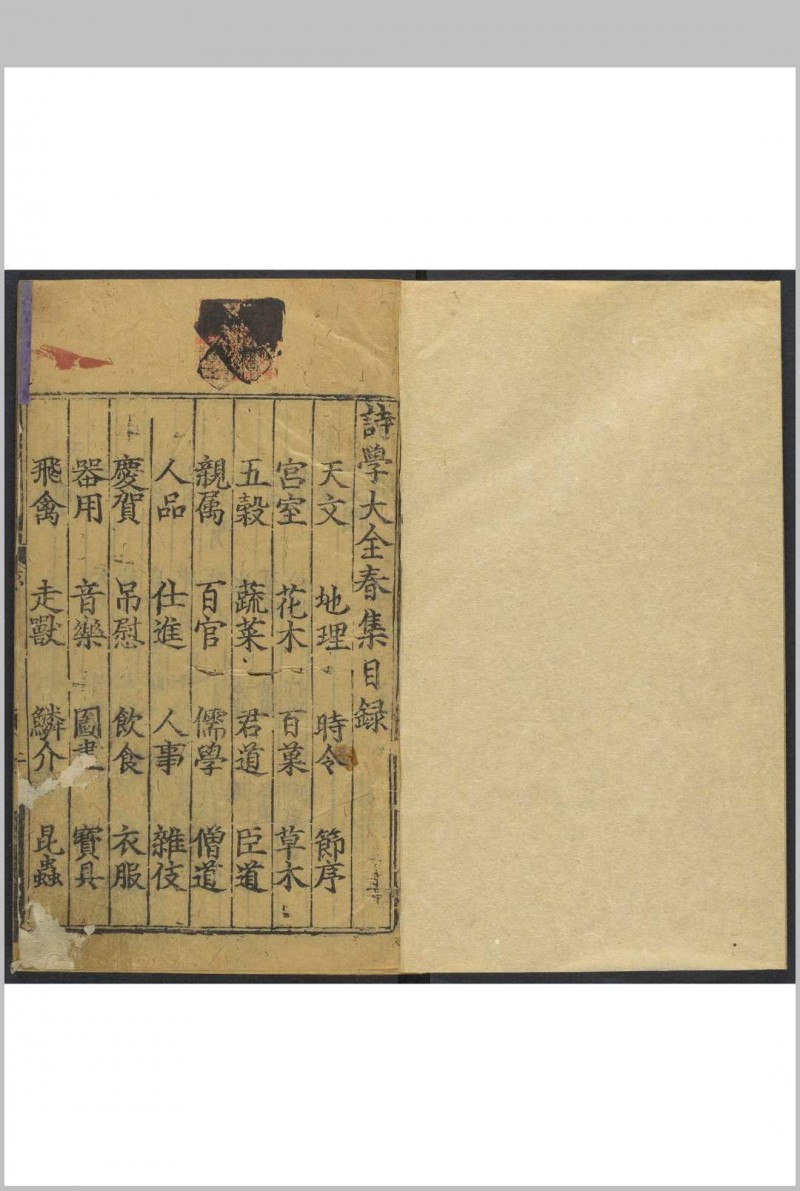 詩學大全春集目録
天文 地理 時令 節序
宮室 花木 百菓 草木
五穀 蔬菜 君道 臣道
親属 百官 儒學 僧道
人品 仕進 人事 雜伎
慶賀 吊慰 飲食 衣服
器用 音樂 圖畫 寶具
飛禽 走獸 鱗介 昆蟲